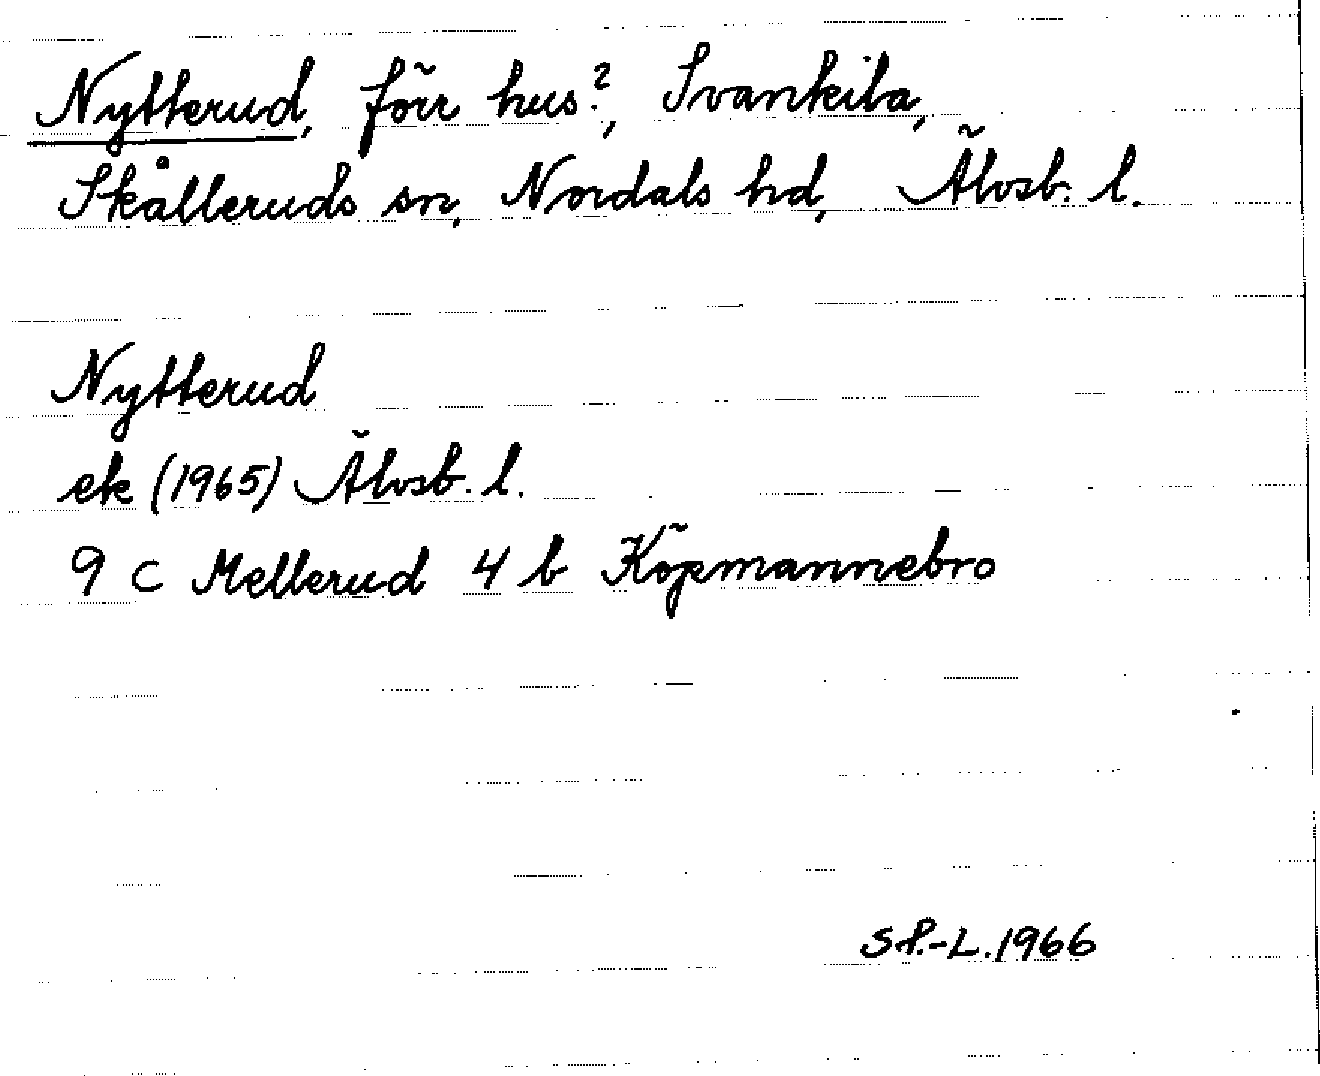 Nytterud, förr hus?, Svankila,
Skålleruds sn, Nordals hd, Älvsb. l.
Nytterud
ek (1965) Älvsb. l.
9 C Mellerud 4 b Köpmannebro
SP.-L. 1966